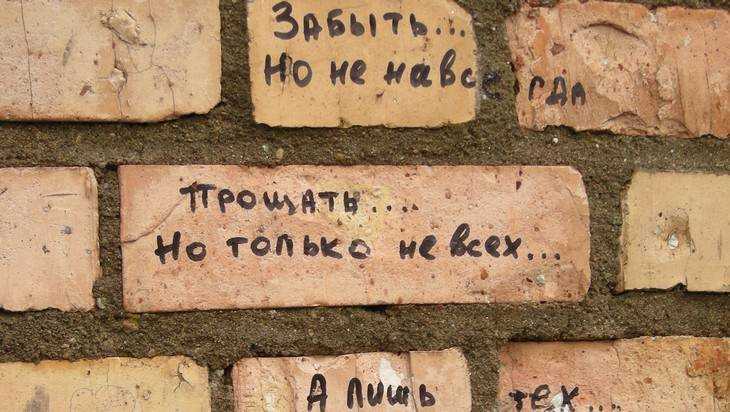 Забыть...
Но не навсегда
Прощать....
Но только не всех...
А лишь тех...